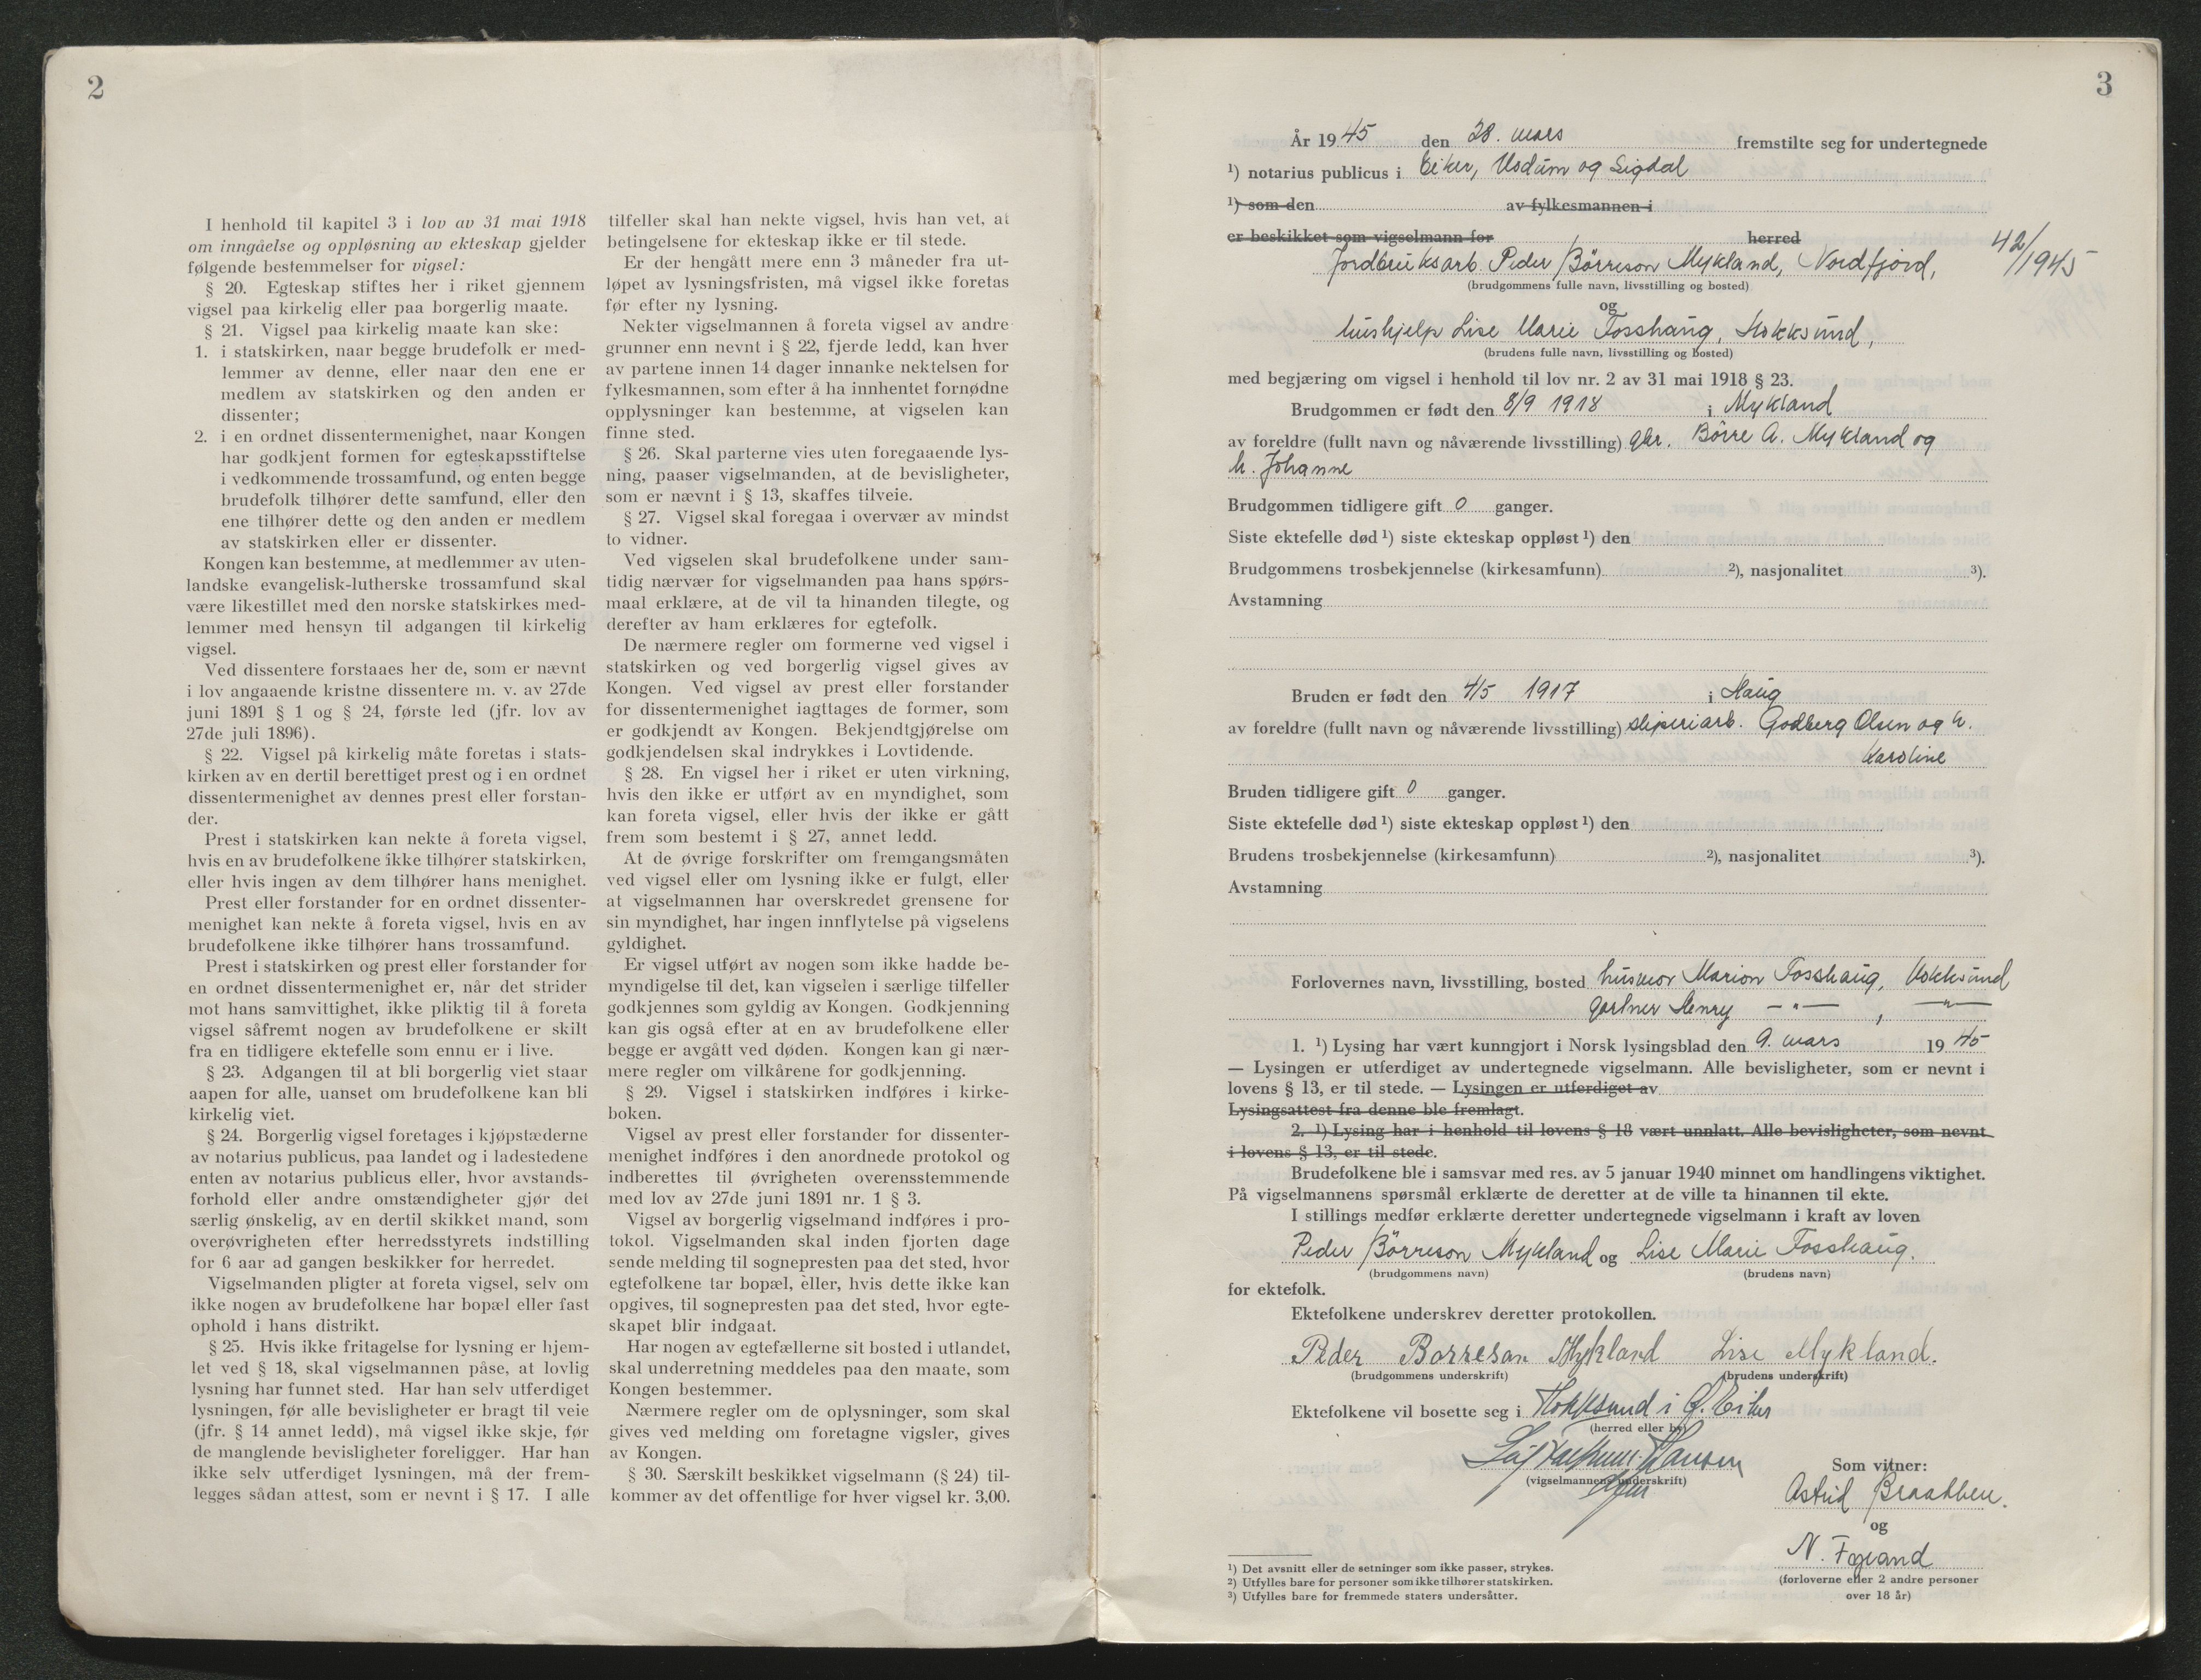 2
I henhold til kapitel 3 i lov av 31 mai 1918
om inngåelse og oppløsning av ekteskap gjelder
følgende bestemmelser for vigsel:
§ 20. Egteskap stiftes her i riket gjennem
vigsel paa kirkelig eller paa borgerlig maate.
§ 21. Vigsel paa kirkelig maate kan ske:
1. i statskirken, naar begge brudefolk er med-
lemmer av denne, eller naar den ene er
medlem av statskirken og den anden er
dissenter;
2. i en ordnet dissentermenighet, naar Kongen
har godkjent formen for egteskapsstiftelse
i vedkommende trossamfund, og enten begge
brudefolk tilhører dette samfund, eller den
ene tilhører dette og den anden er medlem
av statskirken eller er dissenter.
Kongen kan bestemme, at medlemmer av uten-
landske evangelisk-lutherske trossamfund skal
være likestillet med den norske statskirkes med-
lemmer med hensyn til adgangen til kirkelig
vigsel.
Ved dissentere forstaaes her de, som er nævnt
i lov angaaende kristne dissentere m. v. av 27de
juni 1891 § 1 og § 24, første led (jfr. lov av
27de juli 1896).
§ 22. Vigsel på kirkelig måte foretas i stats-
kirken av en dertil berettiget prest og i en ordnet
dissentermenighet av dennes prest eller forstan-
der.
Prest i statskirken kan nekte å foreta vigsel,
hvis en av brudefolkene ikke tilhører statskirken,
eller hvis ingen av dem tilhører hans menighet.
Prest eller forstander for en ordnet dissenter-
menighet kan nekte å foreta vigsel, hvis en av
brudefolkene ikke tilhører hans trossamfund.
Prest i statskirken og prest eller forstander for
en ordnet dissentermenighet er, når det strider
mot hans samvittighet, ikke pliktig til å foreta
vigsel såfremt nogen av brudefolkene er skilt
fra en tidligere ektefelle som ennu er i live.
§ 23. Adgangen til at bli borgerlig viet staar
aapen for alle, uanset om brudefolkene kan bli
kirkelig viet.
§ 24. Borgerlig vigsel foretages i kjøpstæderne
av notarius publicus, paa landet og i ladestedene
enten av notarius publicus eller, hvor avstands-
forhold eller andre omstændigheter gjør det
særlig ønskelig, av en dertil skikket mand, som
overøvrigheten efter herredsstyrets indstilling
for 6 aar ad gangen beskikker for herredet.
Vigselmanden pligter at foreta vigsel, selv om
ikke nogen av brudefolkene har bopæl eller fast
ophold i hans distrikt.
§ 25. Hvis ikke fritagelse for lysning er hjem-
let ved § 18, skal vigselmannen påse, at lovlig
lysning har funnet sted. Har han selv utferdiget
lysningen, før alle bevisligheter er bragt til veie
(jfr. § 14 annet ledd), må vigsel ikke skje, før
de manglende bevisligheter foreligger. Har han
ikke selv utferdiget lysningen, må der frem-
legges sådan attest, som er nevnt i § 17. I alle
tilfeller skal han nekte vigsel, hvis han vet, at
betingelsene for ekteskap ikke er til stede.
Er der hengått mere enn 3 måneder fra ut-
løpet av lysningsfristen, må vigsel ikke foretas
før efter ny lysning.
Nekter vigselmannen å foreta vigsel av andre
grunner enn nevnt i § 22, fjerde ledd, kan hver
av partene innen 14 dager innanke nektelsen for
fylkesmannen, som efter å ha innhentet fornødne
opplysninger kan bestemme, at vigselen kan
finne sted.
§ 26. Skal parterne vies uten foregaaende lys-
ning, paaser vigselmanden, at de bevisligheter,
som er nævnt i § 13, skaffes tilveie.
§ 27. Vigsel skal foregaa i overvær av mindst
to vidner.
Ved vigselen skal brudefolkene under sam-
tidig nærvær for vigselmanden paa hans spørs-
maal erklære, at de vil ta hinanden tilegte, og
derefter av ham erklæres for egtefolk.
De nærmere regler om formerne ved vigsel i
statskirken og ved borgerlig vigsel gives av
Kongen. Ved vigsel av prest eller forstander
for dissentermenighet iagttages de former, som
er godkjendt av Kongen. Bekjendtgjørelse om
godkjendelsen skal indrykkes i Lovtidende.
§ 28. En vigsel her i riket er uten virkning,
hvis den ikke er utført av en myndighet, som
kan foreta vigsel, eller hvis der ikke er gått
frem som bestemt i § 27, annet ledd.
At de øvrige forskrifter om fremgangsmåten
ved vigsel eller om lysning ikke er fulgt, eller
at vigselmannen har overskredet grensene for
sin myndighet, har ingen innflytelse på vigselens
gyldighet.
Er vigsel utført av nogen som ikke hadde be-
myndigelse til det, kan vigselen i særlige tilfeller
godkjennes som gyldig av Kongen. Godkjenning
kan gis også efter at en av brudefolkene eller
begge er avgått ved døden. Kongen kan gi nær-
mere regler om vilkårene for godkjenning.
§ 29. Vigsel i statskirken indføres i kirke-
boken.
Vigsel av prest eller forstander for dissenter-
menighet indføres i den anordnede protokol og
indberettes til øvrigheten overensstemmende
med lov av 27de juni 1891 nr. 1 § 3.
Vigsel av borgerlig vigselmand indføres i pro-
tokol. Vigselmanden skal inden fjorten dage
sende melding til sognepresten paa det sted, hvor
egtefolkene tar bopæl, eller, hvis dette ikke kan
opgives, til sognepresten paa det sted, hvor egte-
skapet blir indgaat.
Har nogen av egtefællerne sit bosted i utlandet,
skal underretning meddeles paa den maate, som
Kongen bestemmer.
Nærmere regler om de oplysninger, som skal
gives ved melding om foretagne vigsler, gives
av Kongen.
§ 30. Særskilt beskikket vigselmann (§ 24) til-
kommer av det offentlige for hver vigsel kr. 3,00.
3
År 1945 den 28. mars fremstilte seg for undertegnede
¹) notarius publicus i Eiker, Modum og Sigdal
¹) som den av fylkesmannen i
er beskikket som vigselmann for herred
42/1945
Jordbruksarb. Peder Børreson Mykland, Nordfjord,
(brudgommens fulle navn, livsstilling og bosted)
og
hushjelp Lise Marie Fosshaug, Hokksund,
(brudens fulle navn, livsstilling og bosted)
med begjæring om vigsel i henhold til lov nr. 2 av 31 mai 1918 § 23.
Brudgommen er født den 8/9 1918 i Mykland
av foreldre (fullt navn og nåværende livsstilling) gbr. Børre A. Mykland og
h. Johanne
Brudgommen tidligere gift 0 ganger.
Siste ektefelle død ¹) siste ekteskap oppløst ¹) den
Brudgommens trosbekjennelse (kirkesamfunn) ²), nasjonalitet ³).
Avstamning
Bruden er født den 4/5 1917 i Haug
av foreldre (fullt navn og nåværende livsstilling) sliperiarb. Godberg Olsen og h.
Karoline
Bruden tidligere gift 0 ganger.
Siste ektefelle død ¹) siste ekteskap oppløst ¹) den
Brudens trosbekjennelse (kirkesamfunn) ²), nasjonalitet ³).
Avstamning
Forlovernes navn, livsstilling, bosted husmor Marion Fosshaug, Hokksund
gartner Henry — " — , — " —
1. ¹) Lysing har vært kunngjort i Norsk lysingsblad den 9. mars 1945
— Lysingen er utferdiget av undertegnede vigselmann. Alle bevisligheter, som er nevnt i
lovens § 13, er til stede. — Lysingen er utferdiget av
Lysingsattest fra denne ble fremlagt.
2. ¹) Lysing har i henhold til lovens § 18 vært unnlatt. Alle bevisligheter, som nevnt
i lovens § 13, er til stede.
Brudefolkene ble i samsvar med res. av 5 januar 1940 minnet om handlingens viktighet.
På vigselmannens spørsmål erklærte de deretter at de ville ta hinannen til ekte.
I stillings medfør erklærte deretter undertegnede vigselmann i kraft av loven
Peder Børreson Mykland og Lise Marie Fosshaug.
(brudgommens navn) (brudens navn)
for ektefolk.
Ektefolkene underskrev deretter protokollen.
Peder Børresøn Mykland Lise Mykland.
(brudgommens underskrift) (brudens underskrift)
Ektefolkene vil bosette seg i Hokksund i Ø. Eiker
(herred eller by)
Hansen
(vigselmannens underskrift)
Som vitner:
Astrid Braathen.
og
N. Fgeand
(forloverne eller 2 andre personer
over 18 år)
¹) Det avsnitt eller de setninger som ikke passer, strykes.
²) Utfylles bare for personer som ikke tilhører statskirken.
³) Utfylles bare for fremmede staters undersåtter.